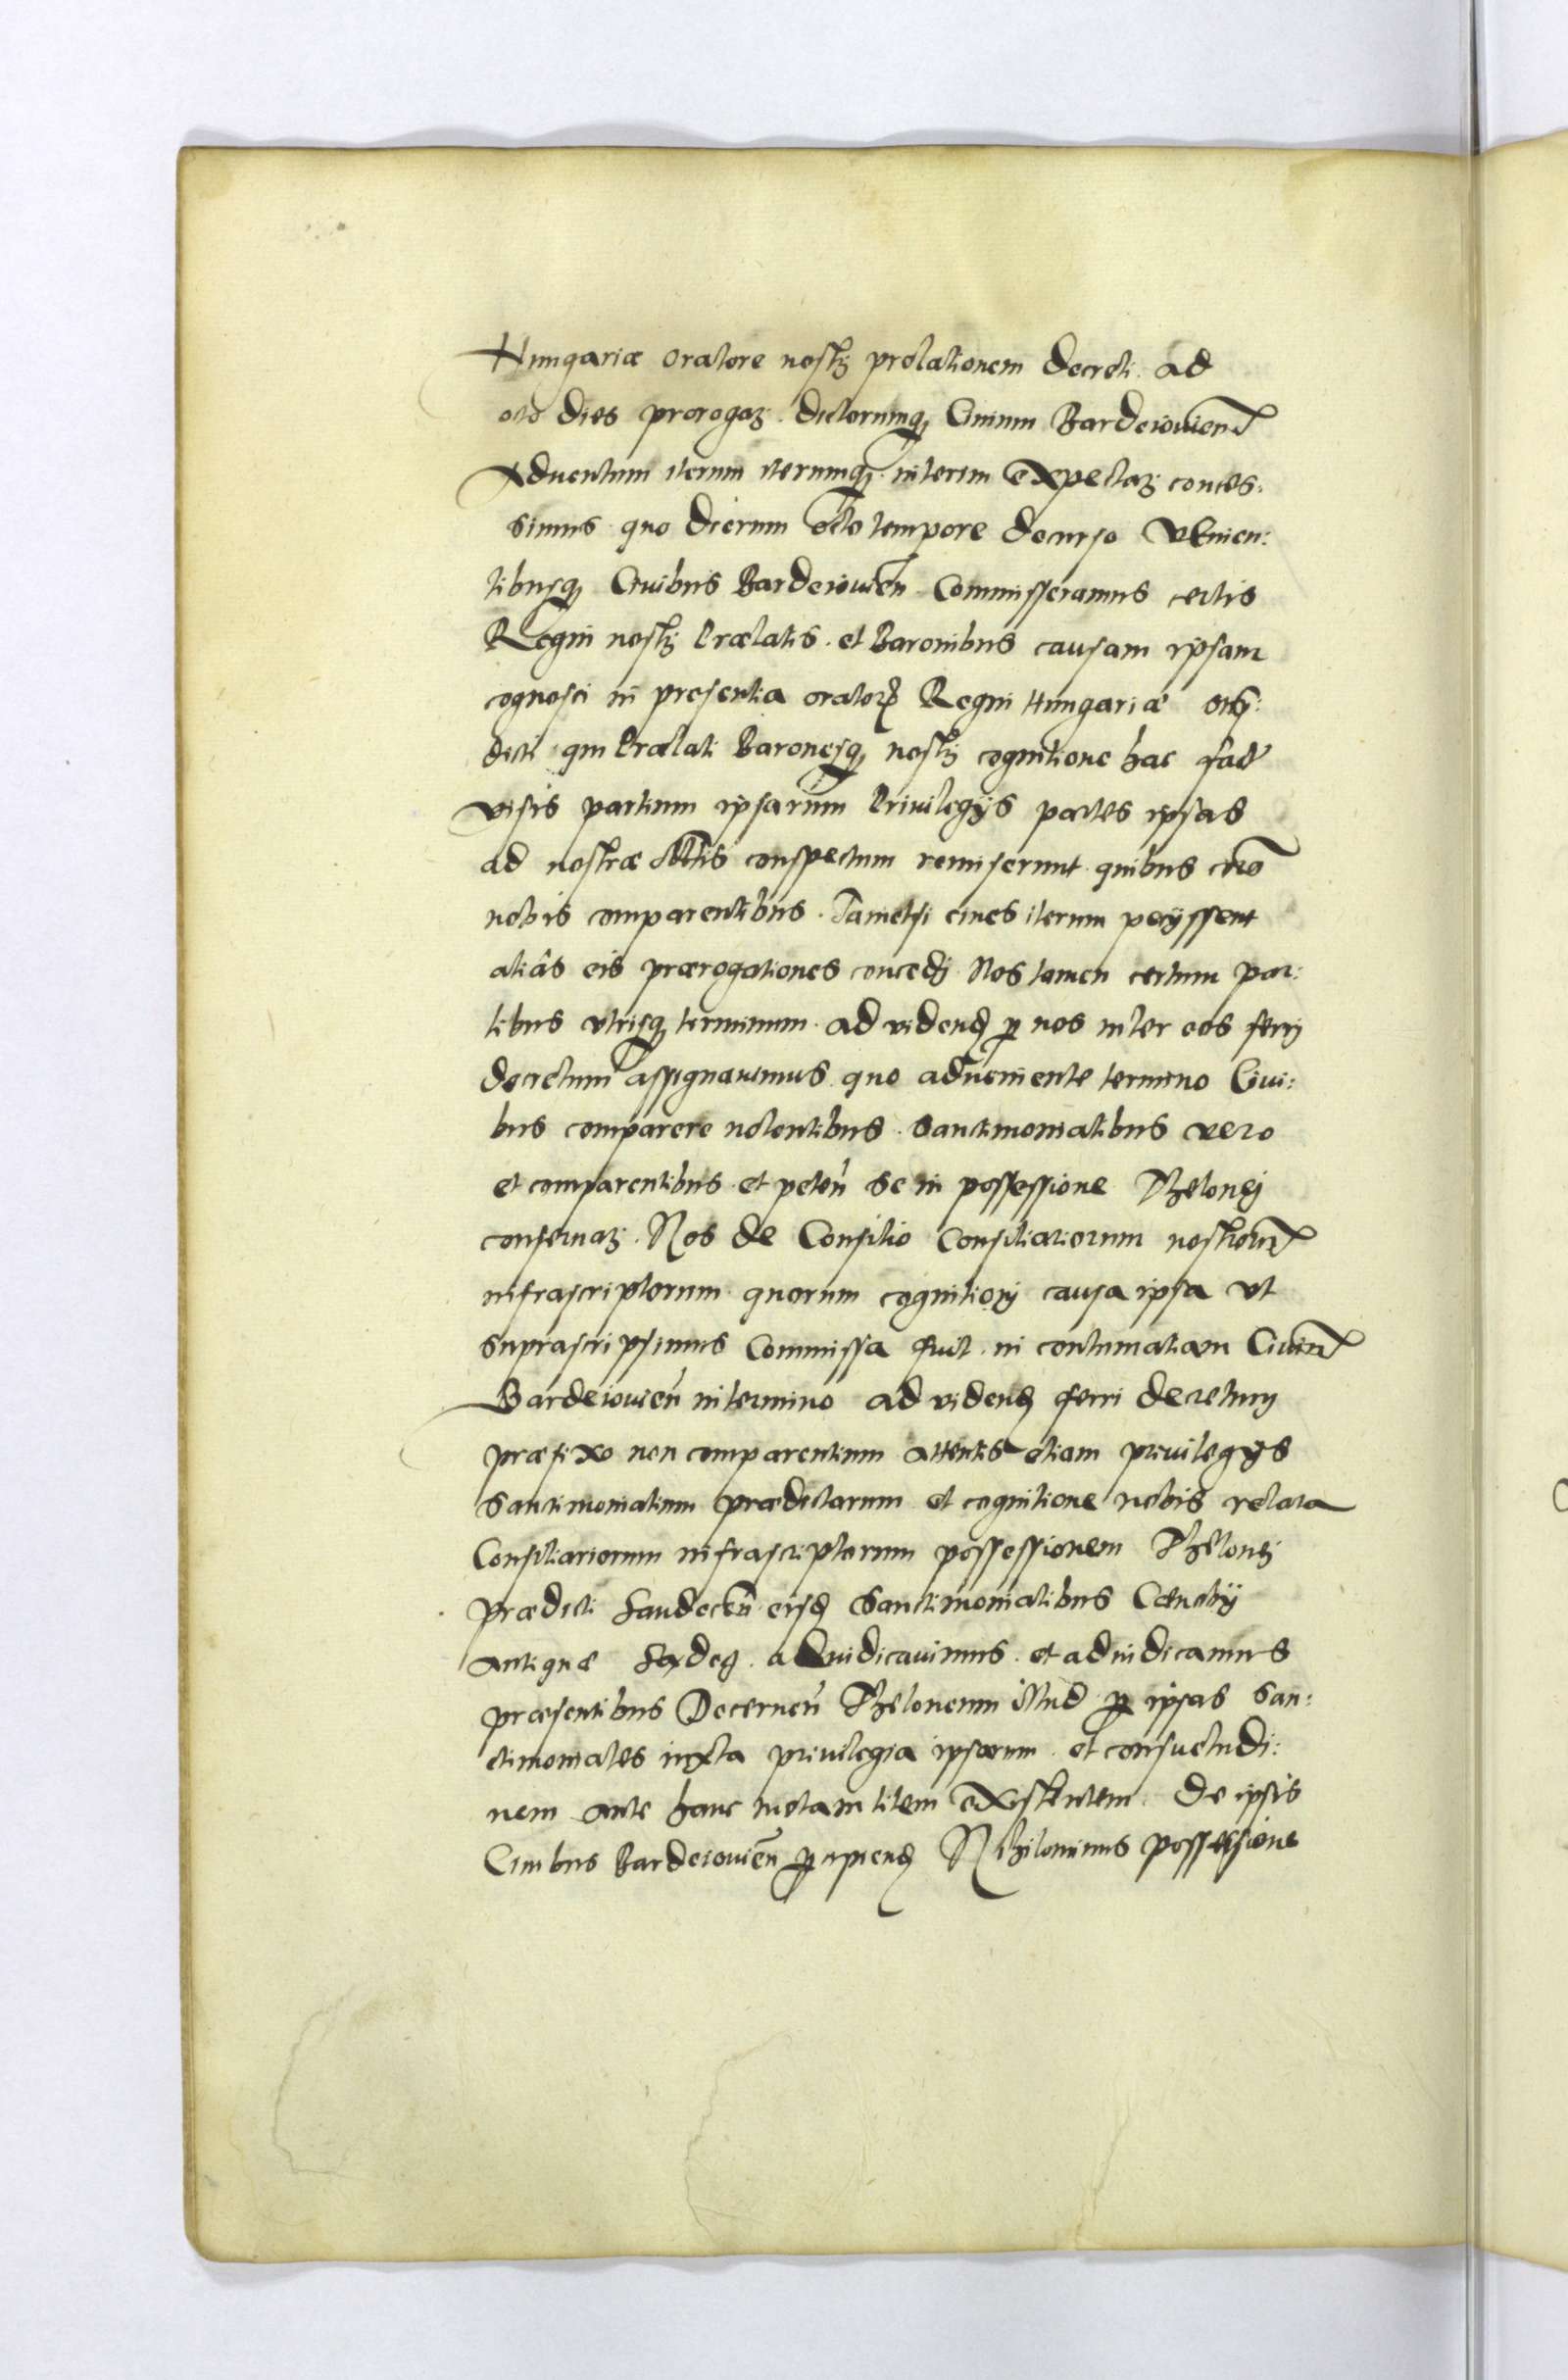 Hungariæ oratore nostrȝ prolationem decreti ad
octo dies prorogaȝ. dictorumqȝ Civium Bardeiovien̄
Adventum iterum iterumqȝ interim expectaȝ conces:
simus quo dierum octo tempore decurso venien:
tibusqȝ Civibus Bardeiovien̄ Commisseramus certis
Regni nostrȝ Prælatis. et Baronibus causam ipsam
cognosci in presentia oratorꝭ Regni Hungariæ
dicti qui Prælati Baronesqȝ nostrȝ cognitione hac
visis partium ipsarum Privilegijs partes ipsas
ad nostræ Mtis conspectum remiserunt quibus
nobis comparentibus. Tametsi cives iterum petijssent
aliâs eis prærogationes concedj Nos tamen certum par:
tibus vtrisqȝ terminum. ad videndꝭ ꝑ nos inter eos ferrj
decretum assignavimus quo adveniente termino Civi:
bus comparere nolentibus. Santimonialibus vero
et comparentibus. et peten̄ se in possessione Thelonej
conservaȝ. Nos de Consilio Consiliariorum nostrorum
infrascriptorum quorum cognitionj causa ipsa vt
suprascripsimus Commissa fuit. in contumatiam Civium
Bardeiovien̄ in termino ad videndꝭ ferri decretum
præfixo non comparentium attentis etiam privilegijs
Santimonialium prædictarum et cognitione nobis relata
Consiliariorum infrascriptorum possessionem Thelonej
Prædicti Sandecen̄ eisdꝭ Sanctimonialibus Cænobij
antiquæ Sadeg. adiudicavimus. et adiudicamus
præsentibus Decernen̄ Theloneum illud ꝑ ipsas San:
ctimoniales iuxta privilegia ipsarum et consuetudi:
nem ante hanc motam litem existentem. de ipsis
Civibus Bardeiovien̄ ꝑcipiendꝭ Nihilominus possessione